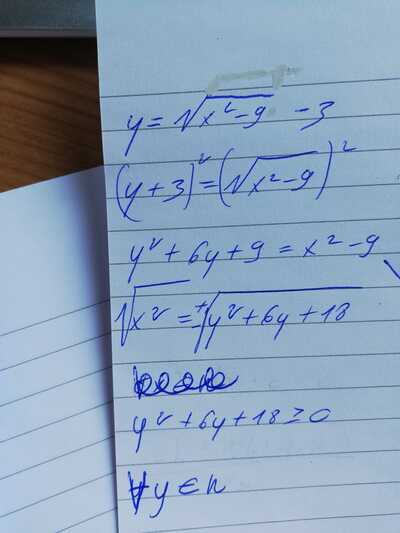 y = √x² - 9 - 3
(y + 3)² = (√x² - 9)²
y² + 6y + 9 = x² - 9
√x² = ±√y² + 6y + 18
y² + 6y + 18 ≥ 0
∀ y ∈ R